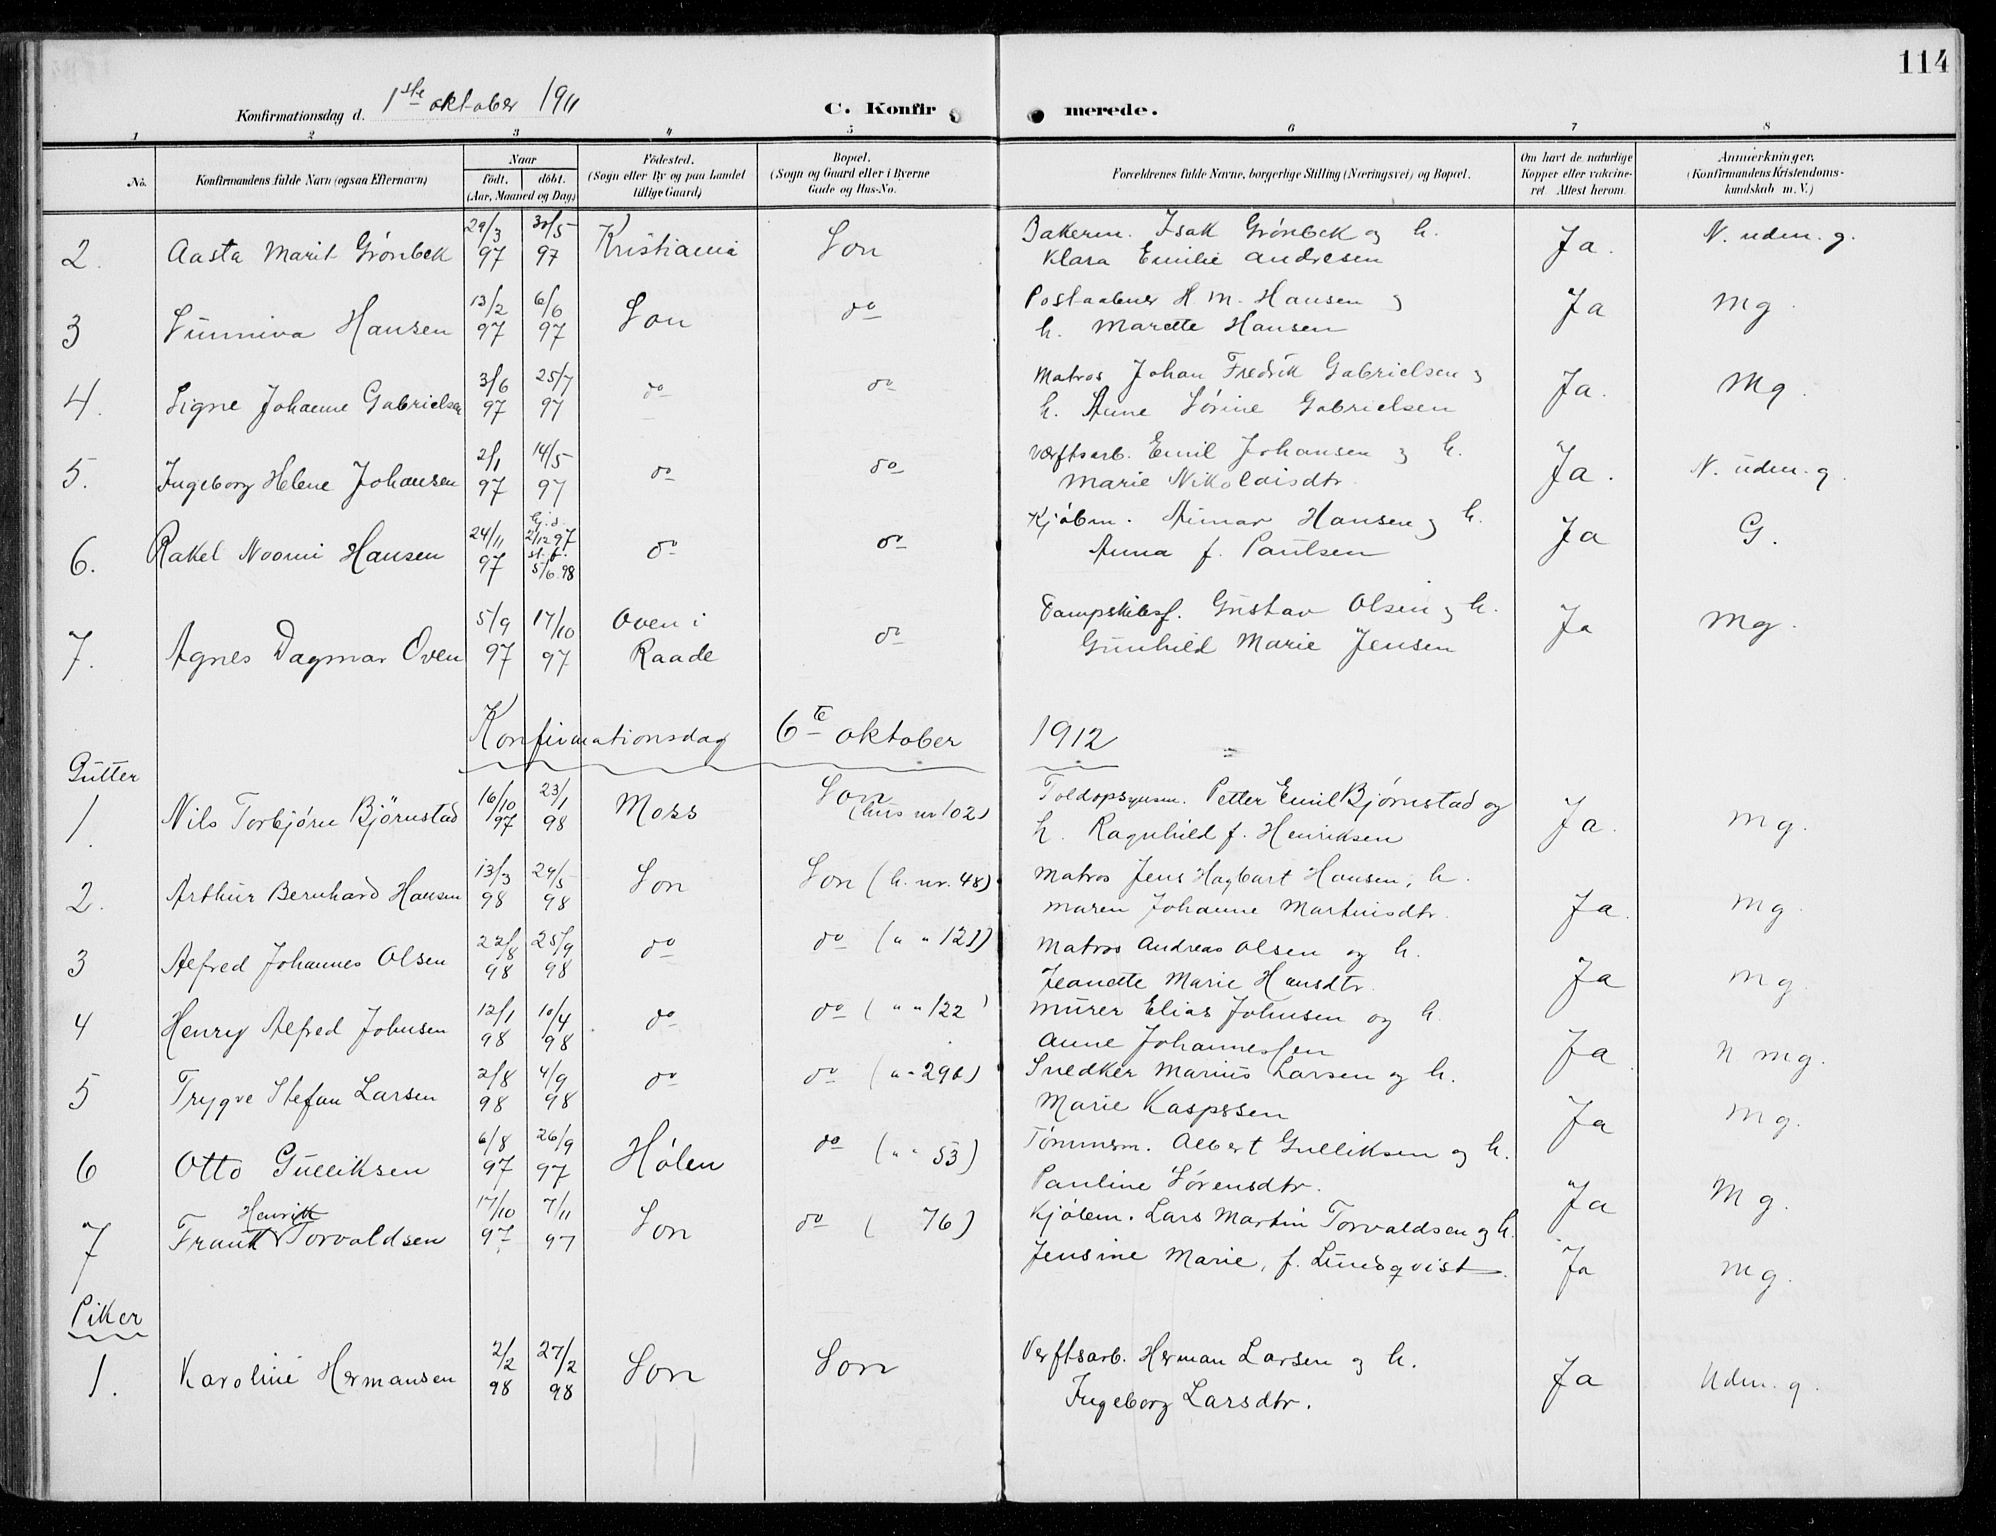 114
Konfirmationsdag d. 1ste oktober 1911
C. Konfirmerede.
1 2 3 4 5 6 7 8
No. Konfirmandens fulde Navn (ogsaa Efternavn) Naar født. døbt. (Aar, Maaned og Dag) Fødested. (Sogn eller By og paa Landet tillige Gaard) Bopæl. (Sogn og Gaard eller i Byerne Gade og Hus-No. Forældrenes fulde Navne, borgerlige Stilling (Næringsvei) og Bopæl. Om havt de naturlige Kopper eller vakcineret. Attest herom. Anmerkninger. (Konfirmandens Kristendomskundskab m. V.)
2. Aasta Marit Grønbek 29/3 97 30/5 97 Kristiania Son Bakerm. Isak Grønbek og h. Ja. N. uden. g.
Klara Emilie Andresen
3 Sunniva Hansen 13/2 97 6/6 97 Son do Postaabner H. M. Hansen og Ja Mg.
h. Marette Hansen
4. Signe Johanne Gabrielsen 3/6 97 25/7 97 do do Matros Johan Fredrik Gabrielsen og Ja. Mg.
h. Anne Sørine Gabrielsen
5. Ingeborg Helene Johansen 2/1 97 14/5 97 do do Værftsarb. Emil Johansen og h. Ja. N. uden. g.
Marie Nikolaisdtr.
6. Rakel Noomi Hansen 24/11 97 hj. d. 2/12 97 st. f. 5/6 98 do do Kjøbm. Aimar Hansen og h. Ja G.
Anna f. Paulsen
7. Agnes Dagmar Oven 5/9 97 17/10 97 Oven i Raade do Dampskibsf. Gustav Olsen og h. Ja Mg.
Gunhild Marie Jensen
Konfirmationsdag 6te oktober 1912
Gutter
1. Nils Torbjørn Bjørnstad 16/10 97 23/1 98 Moss Son (hus nr 102) Toldopsynsm. Petter Emil Bjørnstad og Ja. Mg.
h. Ragnhild f. Henriksen
2. Arthur Bernhard Hansen 13/3 98 29/5 98 Son Son (h. nr. 48) Matros Jens Hagbart Hansen, h. Ja. Mg.
Maren Johanne Martinsdtr.
3 Alfred Johannes Olsen 22/8 98 25/9 98 do do (" " 121) Matros Andreas Olsen og h. Ja Mg.
Jeanette Marie Hansdtr.
4 Henry Alfred Johnsen 12/1 98 10/4 98 do do (" " 122) Murer Elias Johnsen og h. Ja N mg.
Anne Johannessen
5 Trygve Stefan Larsen 2/8 98 4/9 98 do do Snedker Marius Larsen og h. Ja Mg.
Marie Kaspssen
6 Otto Gulliksen 6/8 97 26/9 97 Hølen do (" " 53) Tømmerm. Albert Gulliksen og h. Ja Mg.
Pauline Sørensdtr.
7 Frank Henrik Torvaldsen 17/10 97 7/11 97 Son do ( 76) Kjøbm. Lars Martin Torvaldsen og h. Ja Mg.
Jensine Marie, f. Lundqvist.
Piker
1. Karoline Hermansen 2/2 98 27/2 98 Son Son Verftsarb. Herman Larsen og h. Ja Uden. g.
Ingeborg Larsdtr.